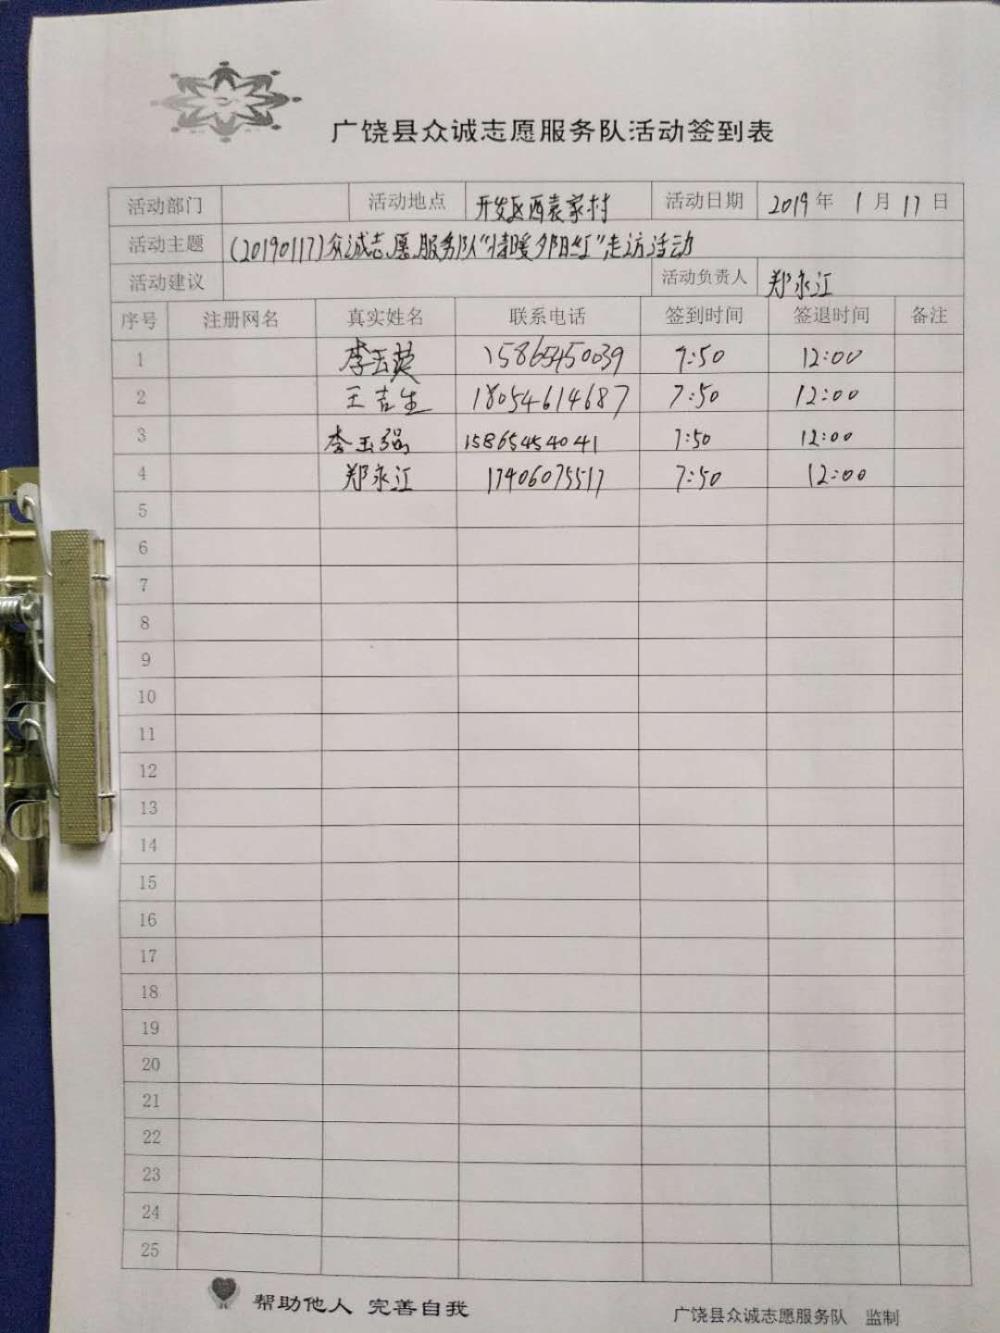 广饶县众诚志愿服务队活动签到表
活动部门 活动地点 开发区西袁家村 活动日期 2019年1月17日
活动主题 (20190117)众诚志愿服务队“情暖夕阳红”走访活动
活动建议 活动负责人 郑永江
序号 注册网名 真实姓名 联系电话 签到时间 签退时间 备注
1 李玉英 15865450039 7:50 12:00
2 王吉生 18054614687 7:50 12:00
3 李玉强 15865454041 7:50 12:00
4 郑永江 17406075517 7:50 12:00
5
6
7
8
9
10
11
12
13
14
15
16
17
18
19
20
21
22
23
24
25
帮助他人 完善自我
广饶县众诚志愿服务队 监制